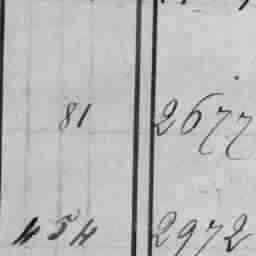 81 2677
454 2972